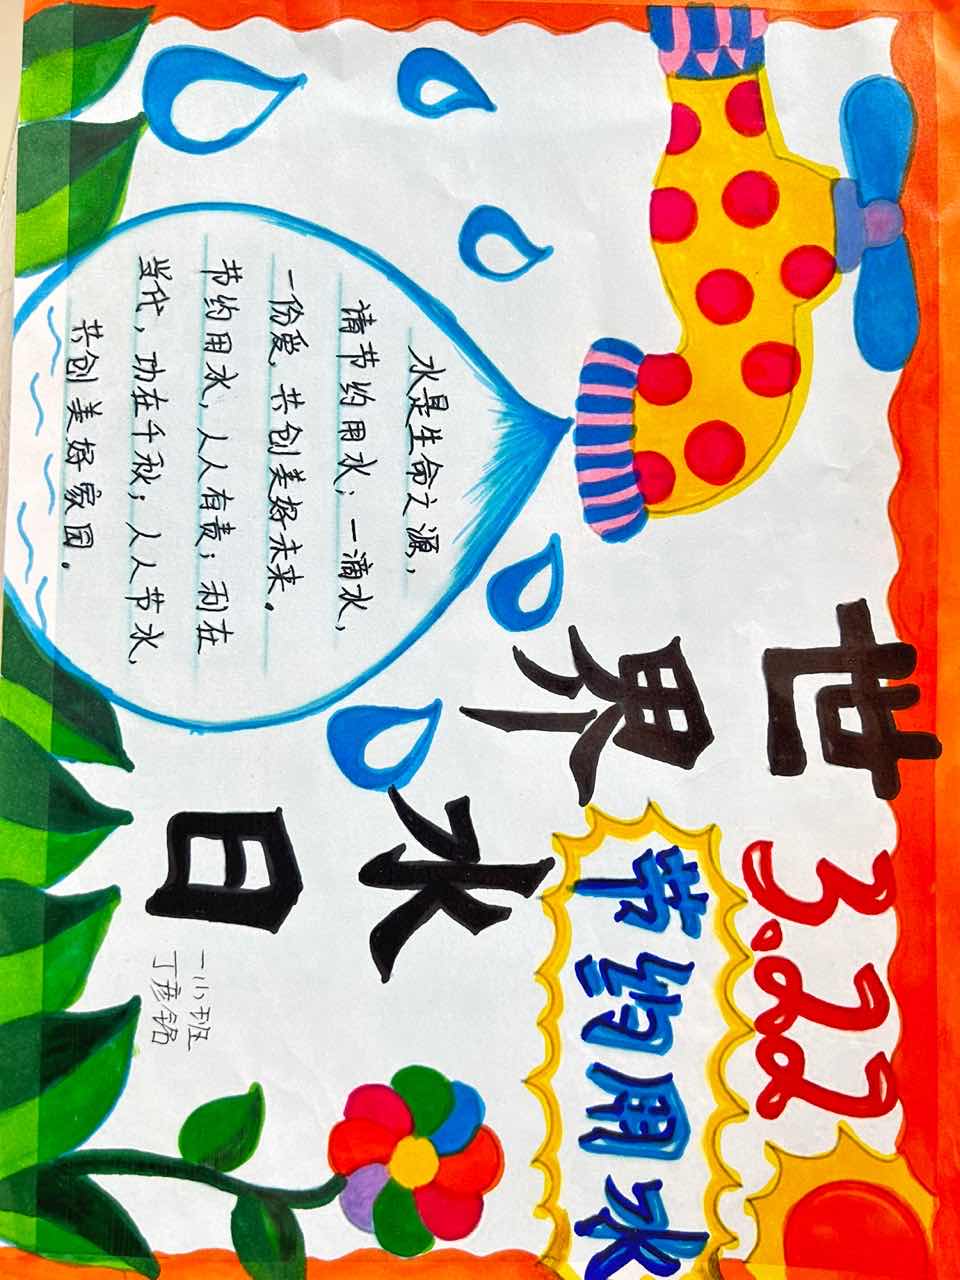 世界水日
3.22
节约用水
水是生命之源，
请节约用水；一滴水，
一份爱，共创美好未来。
节约用水，人人有责；利在
当代，功在千秋；人人节水，
共创美好家园。
丁彦铭